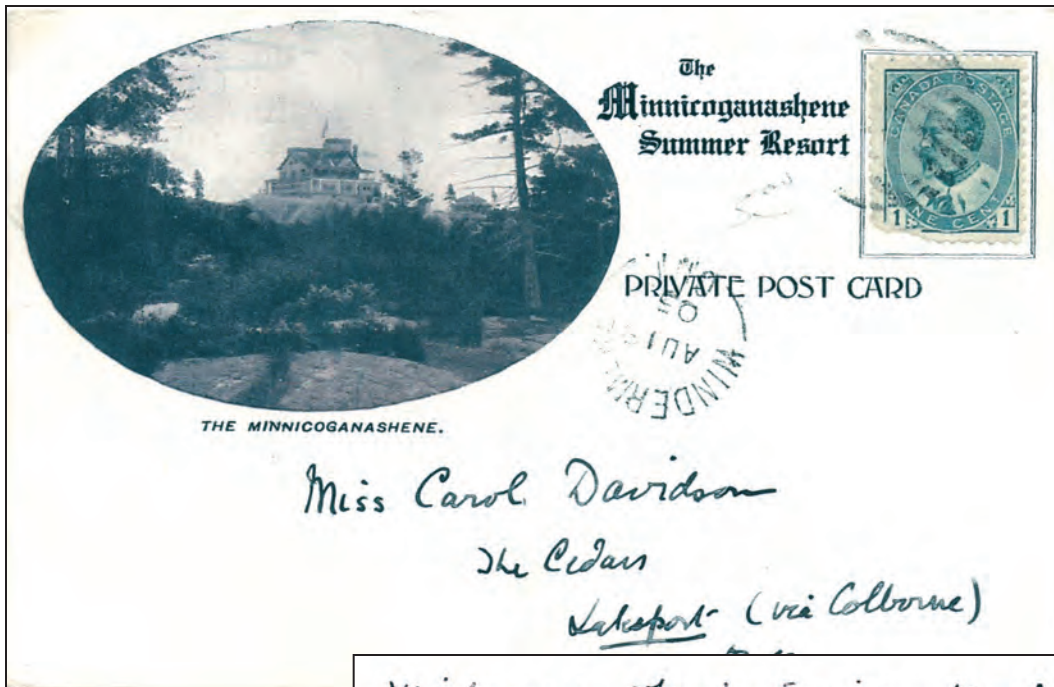 The
Minnicoganashene
Summer Resort
CANADA POSTAGE
1 ONE CENT 1
PRIVATE POST CARD
05
AU
WINDERM
THE MINNICOGANASHENE.
Miss Carol Davidson
The Cedars
Lakeport (via Colborne)